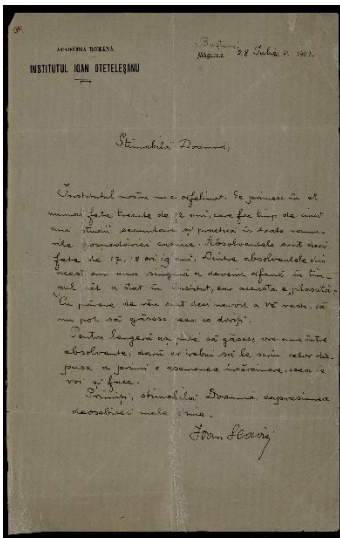 ACADEMIA ROMÂNĂ
INSTITUTUL IOAN OTETELEȘANU
Măgurele 28 Iulie
Stimabilă Doamnă,
Institutul nostru nu e orfelinat. Se primesc în el
numai fete trecute de 12 ani, care fac timp de cinci
ani studii secundare și practică în toate ramu-
rile gospodăriei casnice. Absolventele sunt deci
fete de 17, 18 ori 19 ani. Dintre absolventele din
acest an una singură a devenit orfană în tim-
pul cât a stat în Institut, iar aceasta e plasată.
Cu părere de rău sunt deci nevoit a Vă , că
nu pot să găsesc ceea ce doriți.
Pentru să găsesc vre-una între
absolvente, dară ar trebui să le scriu celor dis-
puse a primi o asemenea însărcinare, ceea ce
voi și face.
Primiți, stimabilă Doamnă, expresiunea
deosebitei mele stime.
Ioan Slavici